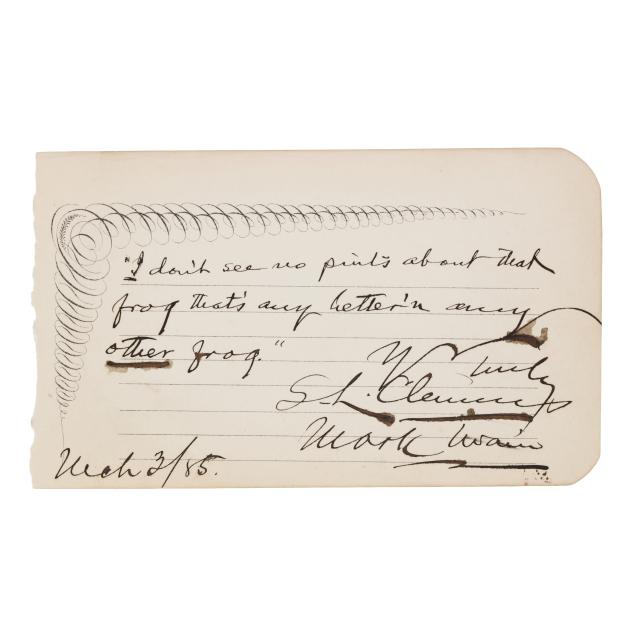 "I don't see no pints about that
frog that's any better'n any
other frog."
Y truly
S. L. Clemens
Mark Twain
Mch 3/85.